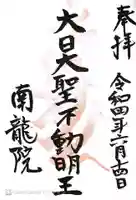 奉拝
令和四年六月十四日
大日大聖不動明王
南龍院